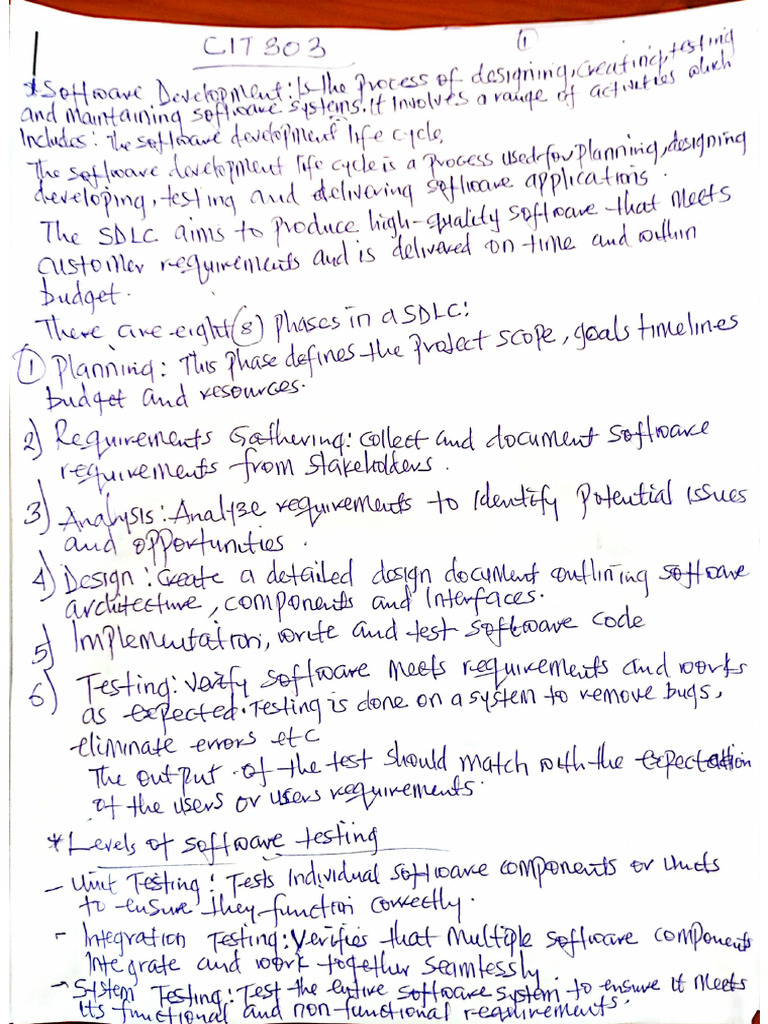 CIT 303
①
*Software Development: Is the process of designing, creating, testing
and maintaining software systems. It involves a range of activities which
Includes: The software development life cycle.
The software development life cycle is a process used for planning, designing
developing, testing and delivering software applications.
The SDLC aims to produce high-quality software that meets
customer requirements and is delivered on time and within
budget.
There are eight (8) phases in a SDLC:
① Planning: This phase defines the project scope, goals timelines
budget and resources.
2) Requirements Gathering: collect and document software
requirements from stakeholders.
3) Analysis: Analyze requirements to identify potential issues
and opportunities.
4) Design: Create a detailed design document outlining software
architecture, components and Interfaces.
5) Implementation, write and test software code
6) Testing: Verify software meets requirements and works
as expected. Testing is done on a system to remove bugs,
eliminate errors etc
The output of the test should match with the expectation
of the users or users requirements.
*Levels of software testing
- Unit Testing: Tests Individual software components or units
to ensure they function correctly.
- Integration Testing: Verifies that multiple software components
Integrate and work together seamlessly.
- System Testing: Test the entire software system to ensure it meets
its functional and non-functional requirements.